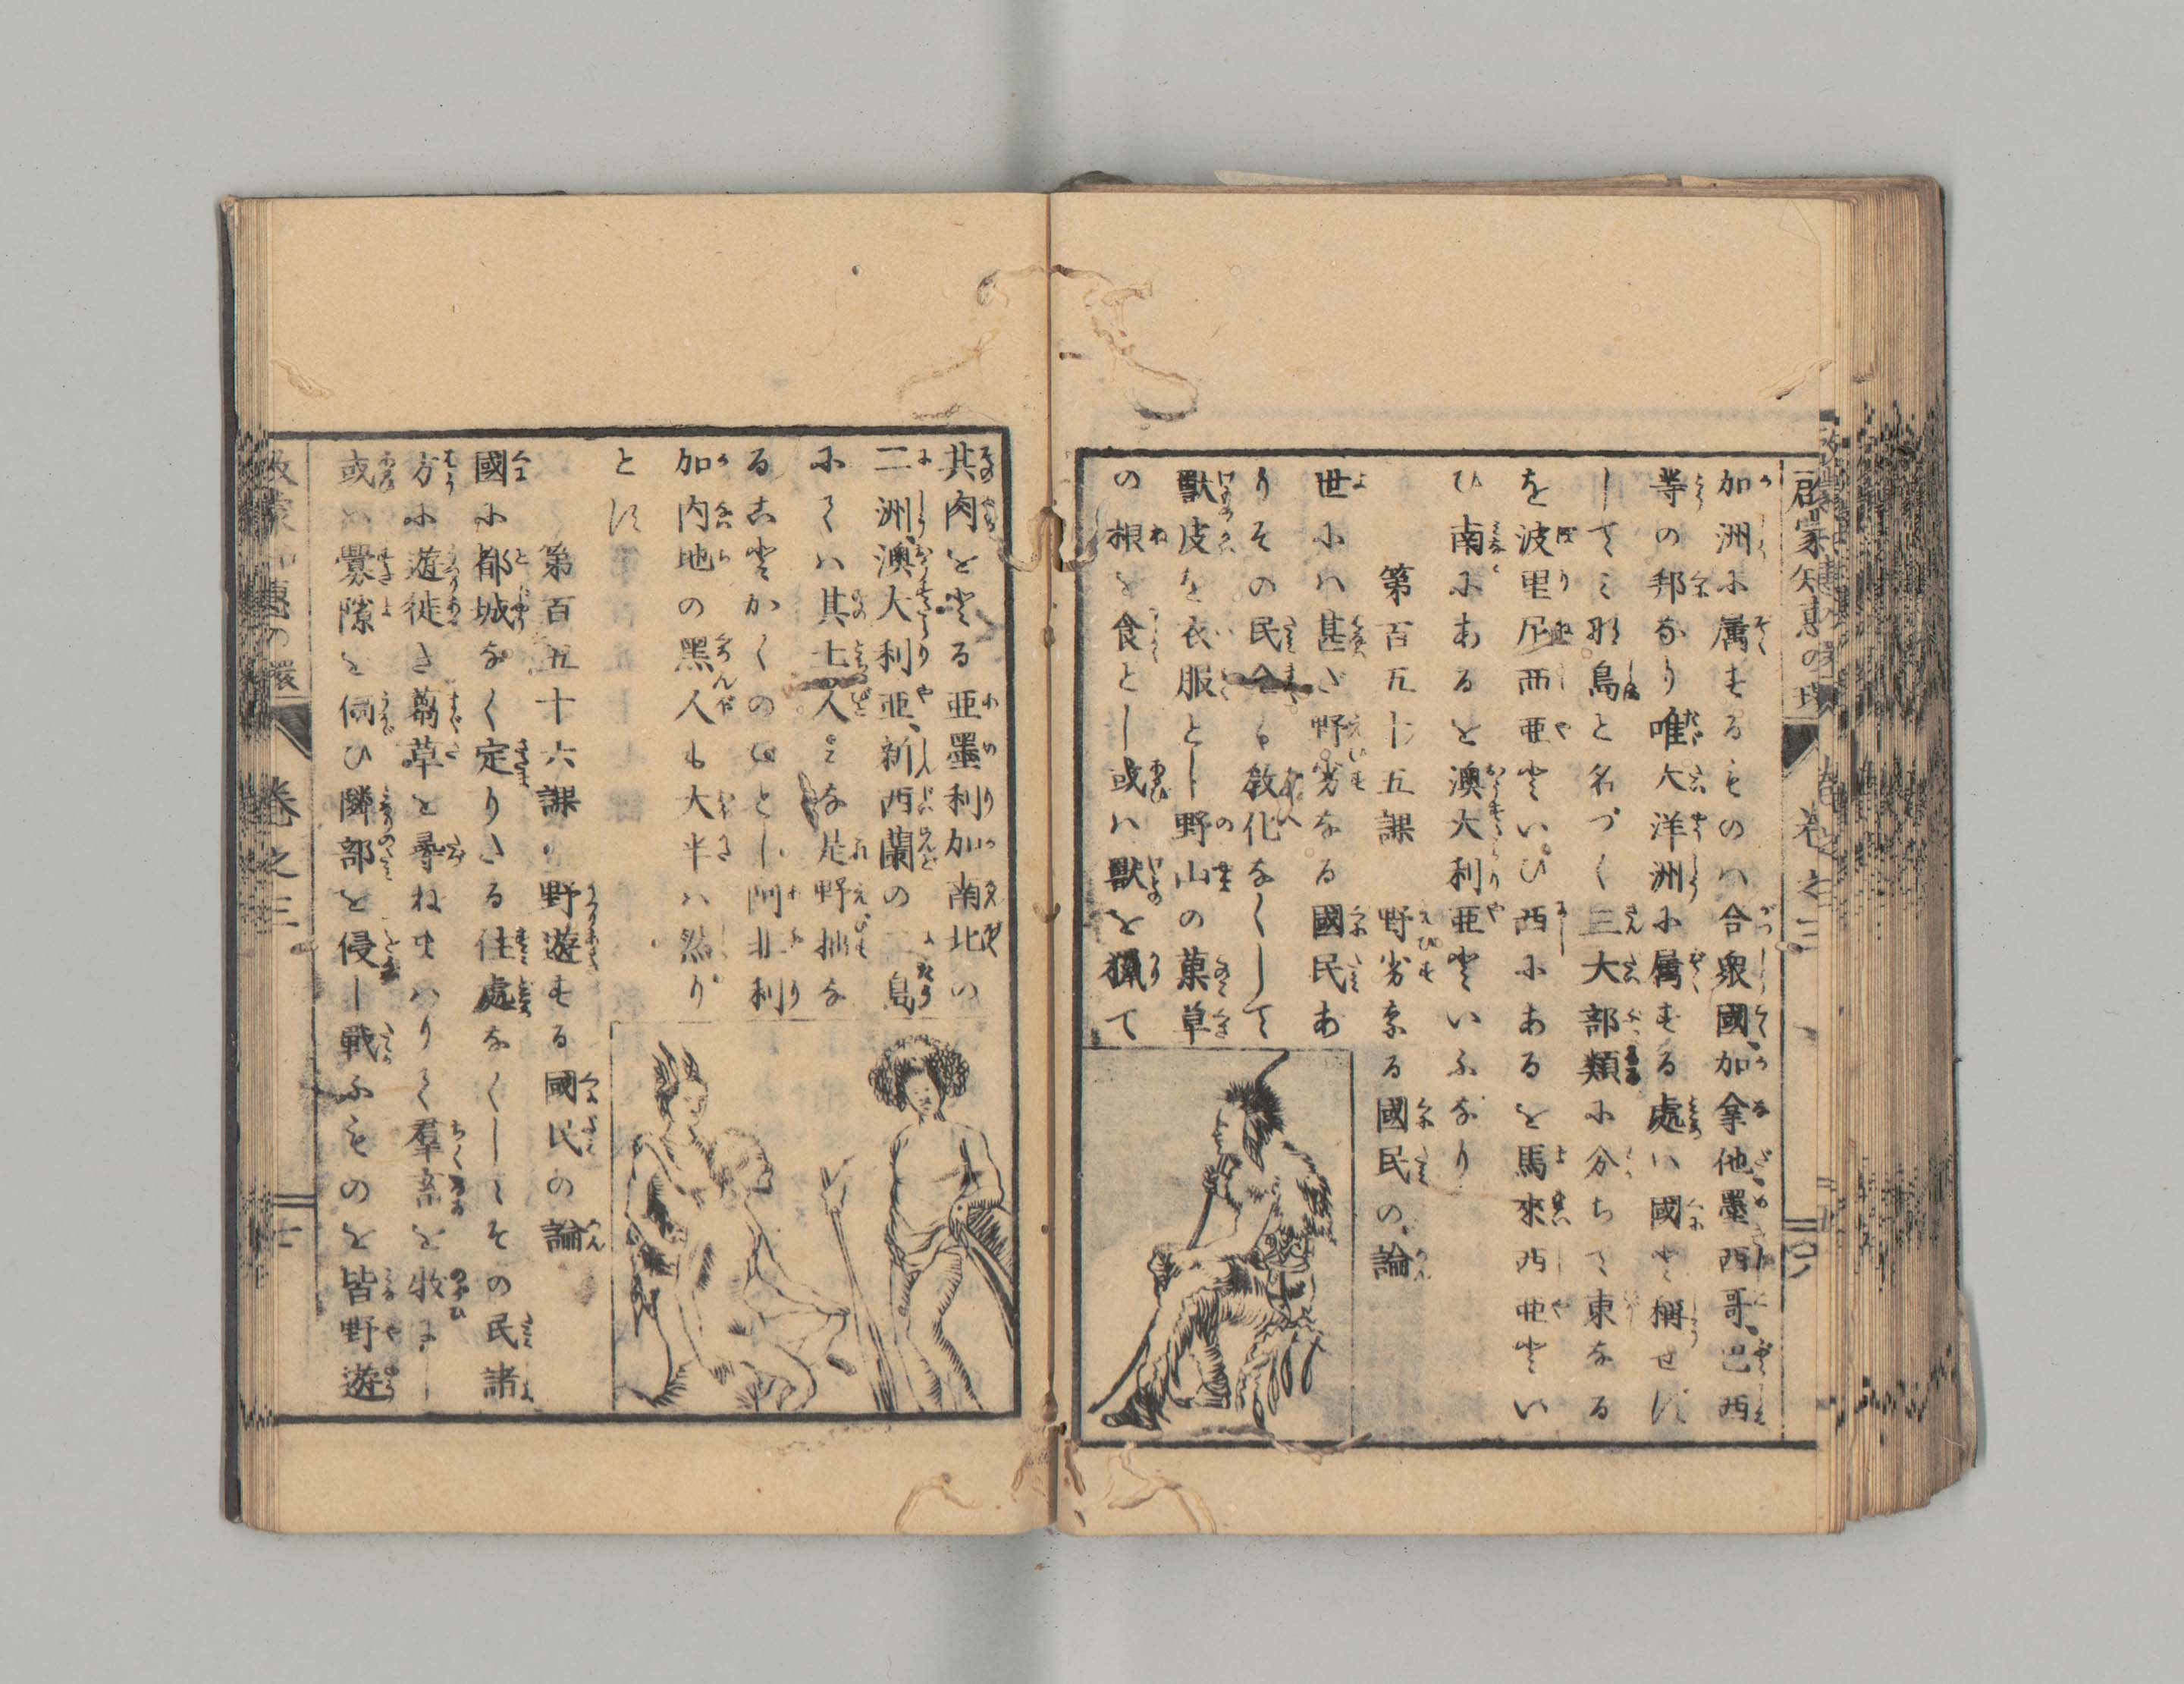 啓蒙知惠の環 卷之三
加洲小属もるものハ合衆國、加拿他、墨西哥、巴西
等の邦なり唯大洋洲小属もる處ハ國と稱せず
してミな島と名づく三大部類小分ちて東なる
を波里尼西亜といひ西小あるを馬來西亜とい
ひ南小あるを澳大利亜といふなり
第百五十五課 野劣なる國民の論
世小ハ甚だ野劣なる國民あ
りその民全く教化なくして
獸皮を衣服とし野山の菓草
の根を食とし或ハ獸を獵て
其肉をとる亜墨利加南北の
二洲、澳大利亜、新西蘭の二島
小てハ其土人ミな是野拙な
ること かくのごとし阿非利
加内地の黑人も大半ハ然り
とす
第百五十六課 野遊もる國民の論
國小都城なく定りたる住處なくしてその民諸
方小遊徙き蒭草を尋ねまハりて羣畜を牧ひ
或ハ釁隙を伺ひ隣部を侵し戰ふものを皆野遊
卷之三